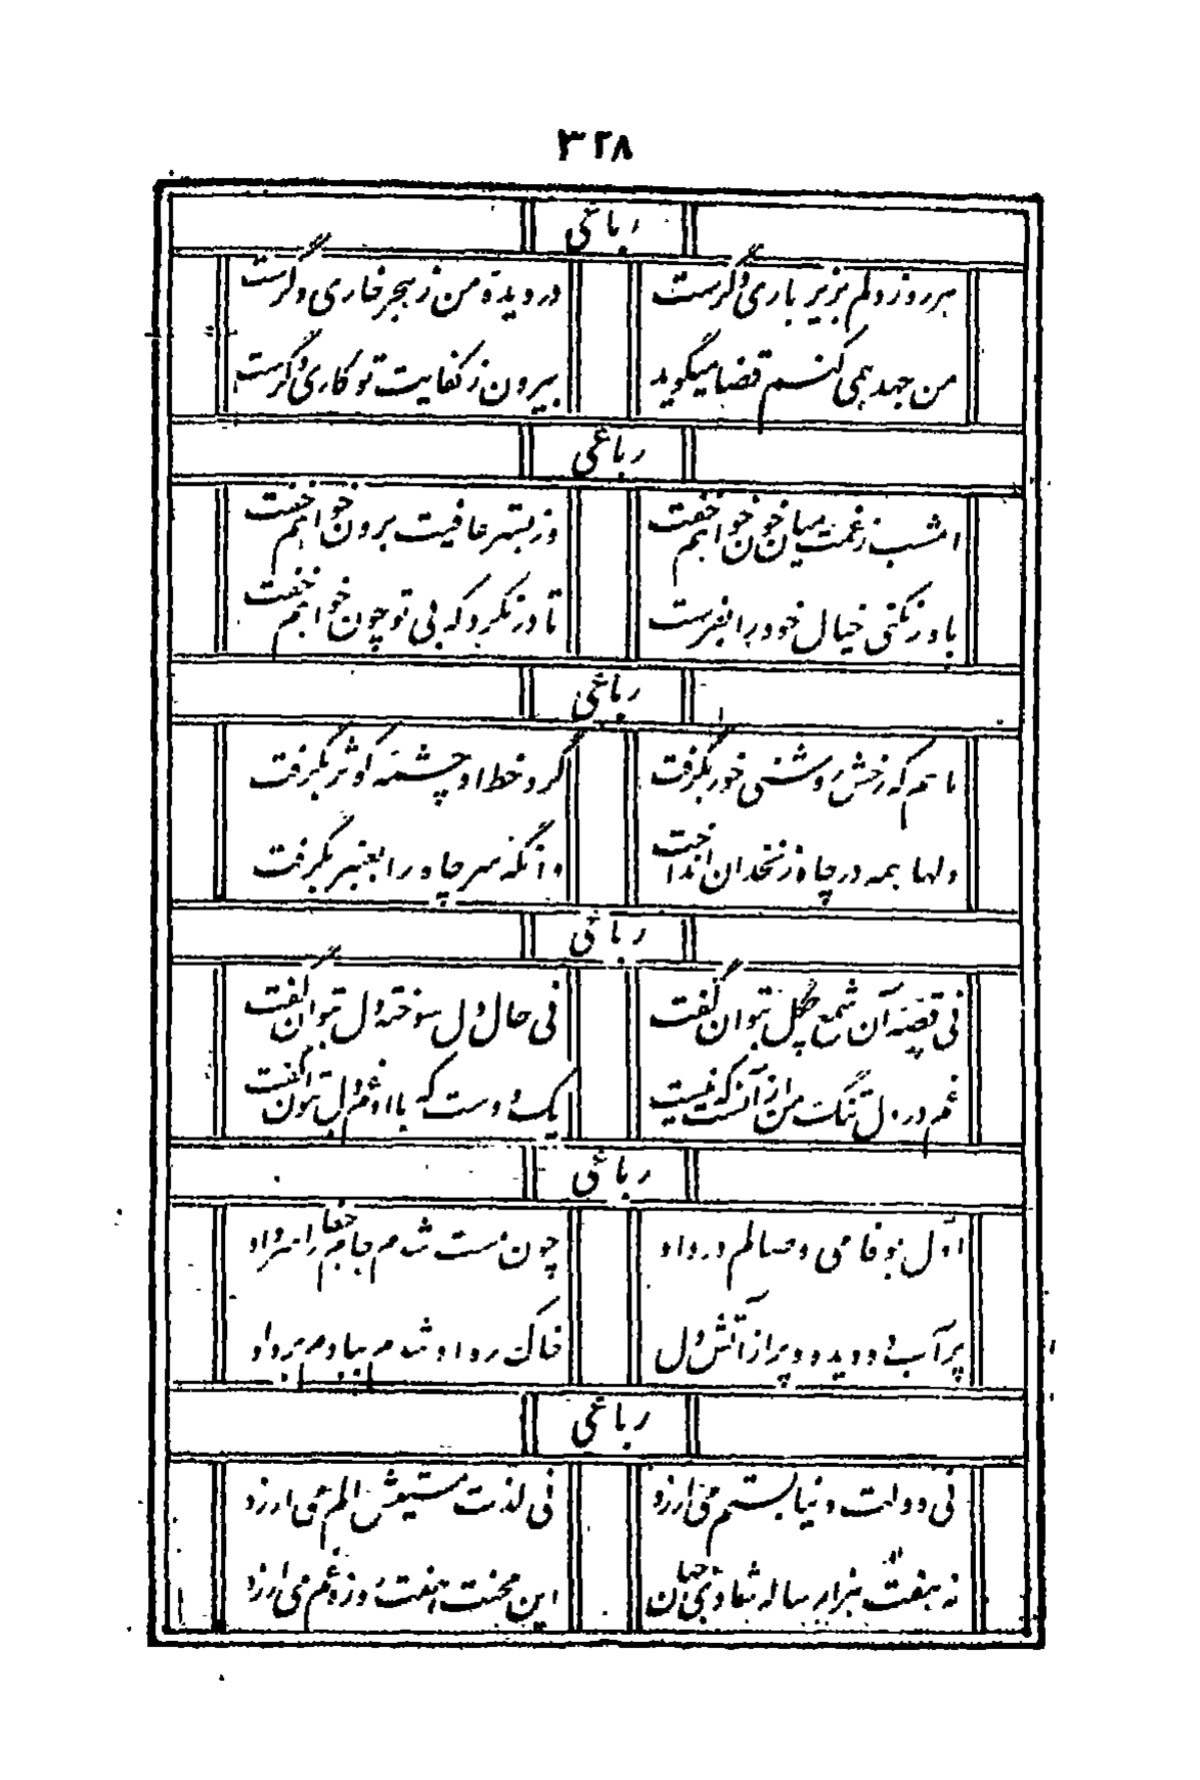 ۳۲۸
رباعی
هر روز دلم بزیر باری دگرست
در دیدهٔ من ز هجر خاری دگرست
من جهد همی کنم قضا میگوید
بیرون ز کفایت تو کاری دگرست
رباعی
امشب ز غمت میان خون خواهم خفت
وز بستر عافیت برون خواهم خفت
باور نکنی خیال خود را بفرست
تا در نگرد که بی تو چون خواهم خفت
رباعی
ماهم که رخش روشنی خور بگرفت
گرد خط او چشمهٔ کوثر بگرفت
دلها همه در چاه زنخدان انداخت
وانگه سر چاه را بعنبر بگرفت
رباعی
نی قصهٔ آن شمع چگل بتوان گفت
نی حال دل سوخته دل بتوان گفت
غم در دل تنگ من از آنست که نیست
یک دوست که با او غم دل بتوان گفت
رباعی
اول بوفا می وصالم در داد
چون مست شدم جام جفا را سر داد
پر آب دو دیده و پر از آتش دل
خاک ره او شدم ببادم بر داد
رباعی
نی دولت دنیا بستم می ارزد
نی لذت مستیش الم می ارزد
نه هفت هزار ساله شادی جهان
این محنت هفت روزه غم می ارزد